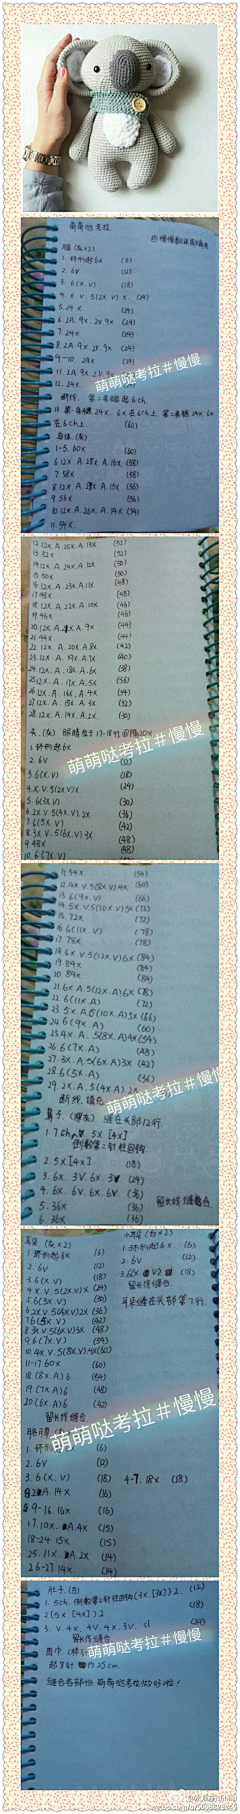 萌萌哒考拉
腿(灰×2)
1. 环形起6x (6)
2. 6V (12)
3. 6(X.V) (18)
4. X.V.5(2X.V).X. (24)
5. 24X (24)
6. 2A.9X.2V.9X (24)
7. 24X (24)
8. 2A.9X.2V.9X (24)
9-10. 24X (24)
11. 2A.9X.2V.9X
12. 24X.
萌萌哒考拉#慢慢
在6ch上 (60)
身体(灰)
1-5. 60X (60)
6. 12X.A.28X.A.16X (58)
7. 58X (58)
8. 12X.A.27X.A.15X (56)
9. 56X (56)
10. 12X.A.26X.A.14X (54)
11. 54X.
12. 12X.A.25X.A.13X (52)
13. 52X (52)
14. 12X.A.24X.A.12X (50)
15. 50X (50)
16. 12X.A.23X.A.11X (48)
17. 48X (48)
18. 12X.A.22X.A.10X (46)
19. 46X (46)
20. 12X.A.21X.A.9X (44)
21. 44X (44)
22. 12X.A.20X.A.8X (42)
23. 12X.A.19X.A.7X (40)
24. 12X.A.18X.A.6X (38)
25. 12X.A.17X.A.5X (36)
26. 12X.A.16X.A.4X (34)
27. 12X.A.15X.A.3X (32)
28. 12X.A.14X.A.2X (30)
头.(灰) 眼睛位于17-18行间隔20X
1. 环形起6X
2. 6V (12)
3. 6(X.V) (18)
4. X.V.5(2X.V)X (24)
5. 6(3X.V) (30)
6. 2X.V.5(4X.V).2X (36)
7. 6(5X.V) (42)
8. 3X.V.5(6X.V).3X (48)
9. 48X (48)
10. 6(7X.V)
萌萌哒考拉#慢慢
11. 54X (54)
12. 4X.V.5(8X.V)4X (60)
13. 6(9X.V) (66)
14. 5X.V.5(10X.V)5X (72)
15. 72X (72)
16. 6(11X.V) (78)
17. 78X (78)
18. 6X.V.5(12X.V)6X (84)
19. 84X (84)
20. 84X (84)
21. 6X.A.5(12X.A)6X (78)
22. 6(11X.A) (72)
23. 5X.A.5(10X.A)5X (66)
24. 6(9X.A) (60)
25. 4X.A.5(8X.A)4X (54)
26. 6(7X.A) (48)
27. 3X.A.5(6X.A)3X (42)
28. 6(5X.A) (36)
29. 2X.A.5(4X.A).2X
断线.填充
萌萌哒考拉#慢慢
鼻子.(深灰) 缝在头部12行.
1. 7ch. 5X.[4X]
倒数第二针往回钩
2. 5X[4X] (18)
3. 6X.3V.6X.3V (24)
4. 6X.6V.6X.6V. (36)
5. 36X (36)
6. 36X (36)
留长线缝合
耳朵(灰×2)
1. 环形起6X (6)
2. 6V (12)
3. 6(X.V) (18)
4. X.V.5(2X.V)X (24)
5. 6(3X.V) (30)
6. 2X.V.5(4X.V)2X (36)
7. 6(5X.V) (42)
8. 3X.V.5(6X.V)3X (48)
9. 6(7X.V) (54)
10. 4X.V.5(8X.V)4X (60)
11-17. 60X (60)
18. (8X.A)6 (54)
19. (7X.A)6 (48)
20. (6X.A)6 (42)
留长线缝合.
小耳朵(白×2)
1. 环形起6X. (6)
2. 6V (12)
3. 6(X.V) (18)
留长线缝合.
耳朵缝在头部第7行.
萌萌哒考拉#慢慢
1. 环形 (6)
2. 6V (12)
3. 6(X.V) (18)
4-7. 18X (18)
8. 2A.14X (16)
9-16. 16X (16)
17. 10X.A.4X (15)
18-24. 15X (15)
25. 11X.A.2X (14)
26-27. 14X. (14)
肚子.(白)
1. 5ch.倒数第2针往回钩(3X.[3X])2. (12)
2. (5X.[4X])2 (18)
3. V.4X.4V.4X.3V.sl (24)
留长线缝合
萌萌哒考拉#慢慢
缝合各部份.萌萌哒考拉做好啦!